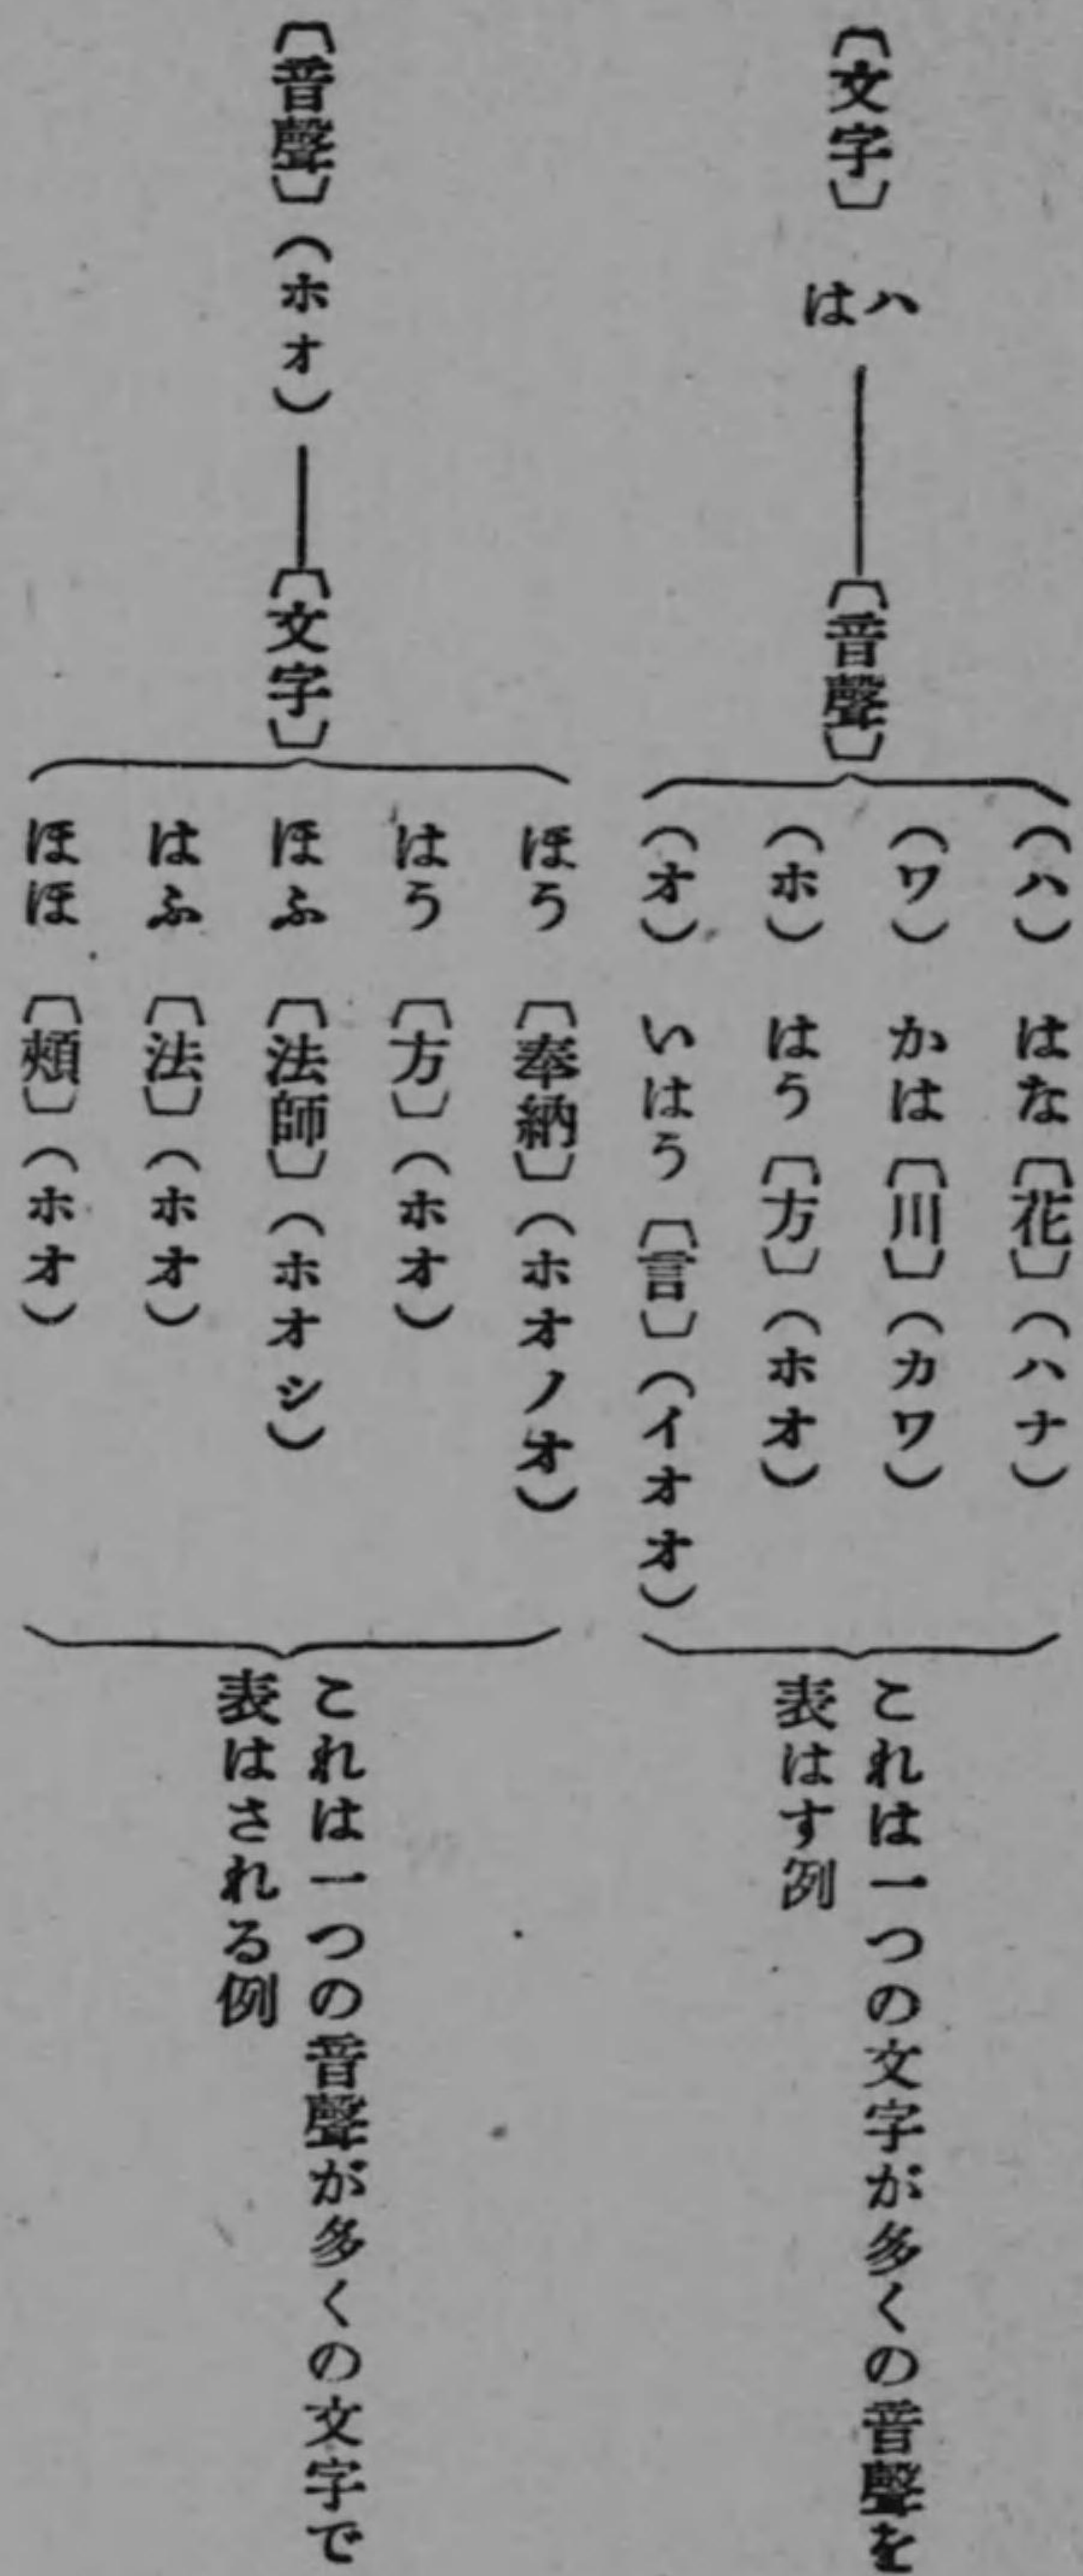 〔文字〕
ハ
は
〔音聲〕
（ハ） はな〔花〕（ハナ）
（ワ） かは〔川〕（カワ）
（ホ） はう〔方〕（ホオ）
（オ） いはう〔言〕（イオオ）
これは一つの文字が多くの音聲を
表はす例
〔音聲〕（ホオ）
〔文字〕
ほう 〔奉納〕（ホオノオ）
はう 〔方〕（ホオ）
ほふ 〔法師〕（ホオシ）
はふ 〔法〕（ホオ）
ほほ 〔頰〕（ホオ）
これは一つの音聲が多くの文字で
表はされる例